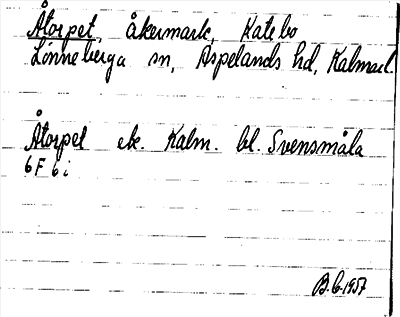 Åtorpet, åkermark, Katebo
Lönneberga sn, Aspelands hd, Kalmarl.
Åtorpet ek. Kalm. bl. Svensmåla
6F 6i
B.G. 1957